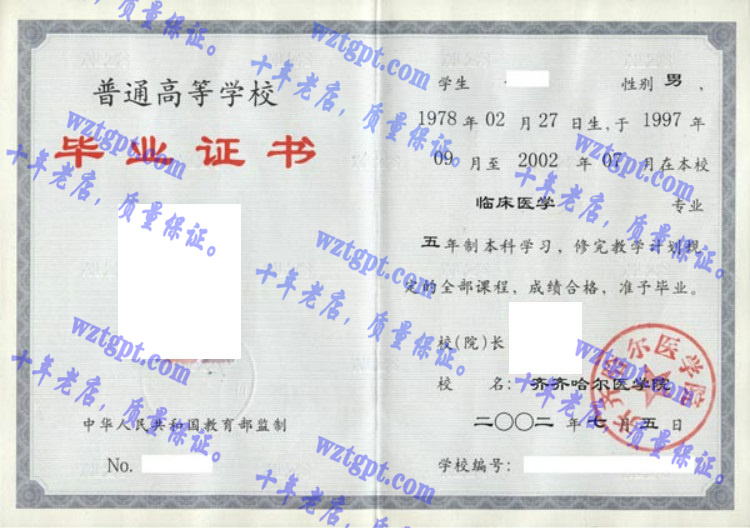 普通高等学校
毕业证书
中华人民共和国教育部监制
No.
学生 性别 男，
1978 年 02 月 27 日生，于 1997 年
09 月至 2002 年 07 月在本校
临床医学 专业
五年制本科学习，修完教学计划规
定的全部课程，成绩合格，准予毕业。
校(院)长
校 名：齐齐哈尔医学院
二〇〇二 年 七 月 五 日
学校编号：
齐齐哈尔医学院
wztgpt.com
十年老店，质量保证。
wztgpt.com
十年老店，质量保证。
wztgpt.com
十年老店，质量保证。
wztgpt.com
十年老店，质量保证。
wztgpt.com
十年老店，质量保证。
wztgpt.com
十年老店，质量保证。
wztgpt.com
十年老店，质量保证。